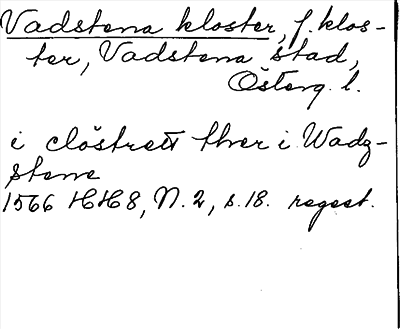 Vadstena kloster, f. klos-
ter, Vadstena stad,
Österg. l.
i clöstrett ther i Wadz-
stene
1566 HH8, N. 2, s. 18. regest.